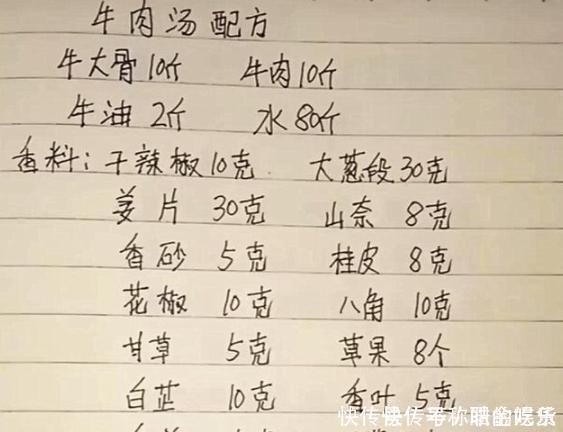 牛肉汤配方
牛大骨10斤 牛肉10斤
牛油 2斤 水 80斤
香料：干辣椒10克 大葱段30克
姜片 30克 山奈 8克
香砂 5克 桂皮 8克
花椒 10克 八角 10克
甘草 5克 草果 8个
白芷 10克 香叶 5克
快传